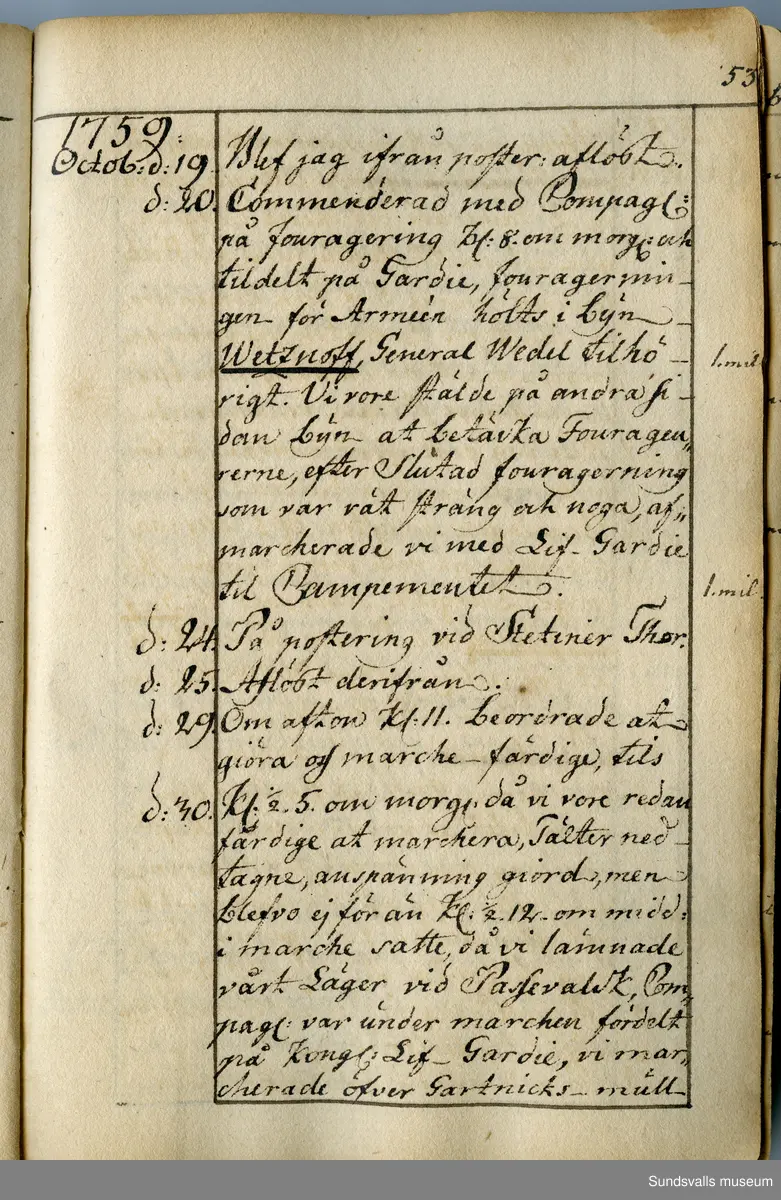 53
1759.
Octob: d: 19. Blef jag ifrån poster: aflöst.
d: 20. Commenderad med Compagl:
på fouragering kl: 8. om morg: och
tildelt på Gardie, fouragernin-
gen för Arméen hölts i byn
Wetznoff, General Wedel tilhö- 1. mil
rigt. Vi vore stälde på andra si-
dan byn at betäcka Fourageu„
rerne, efter Slutad fouragerning
som var rät sträng och noga, af„
marcherade vi med Lif-Gardie
til Campementet. 1. mil.
d: 24. På postering vid Stetiner Thor.
d: 25. Aflöst derifrån.
d: 29. Om afton kl: 11. beordrade at
giöra oss marche-färdige, tils
d: 30. Kl: ½ 5. om morg: då vi vore redan
färdige at marchera, Tälter ned-
tagne, anspänning giord, men
blefvo ej för än kl: ½ 12. om midd:
i marche satte, då vi lämnade
vårt Läger vid Passevalsk, Com„
pagl: var under marchen fördelt
på Kongl: Lif-Gardie, vi mar„
cherade öfver Gartnicks-müll-
Sundsvalls museum